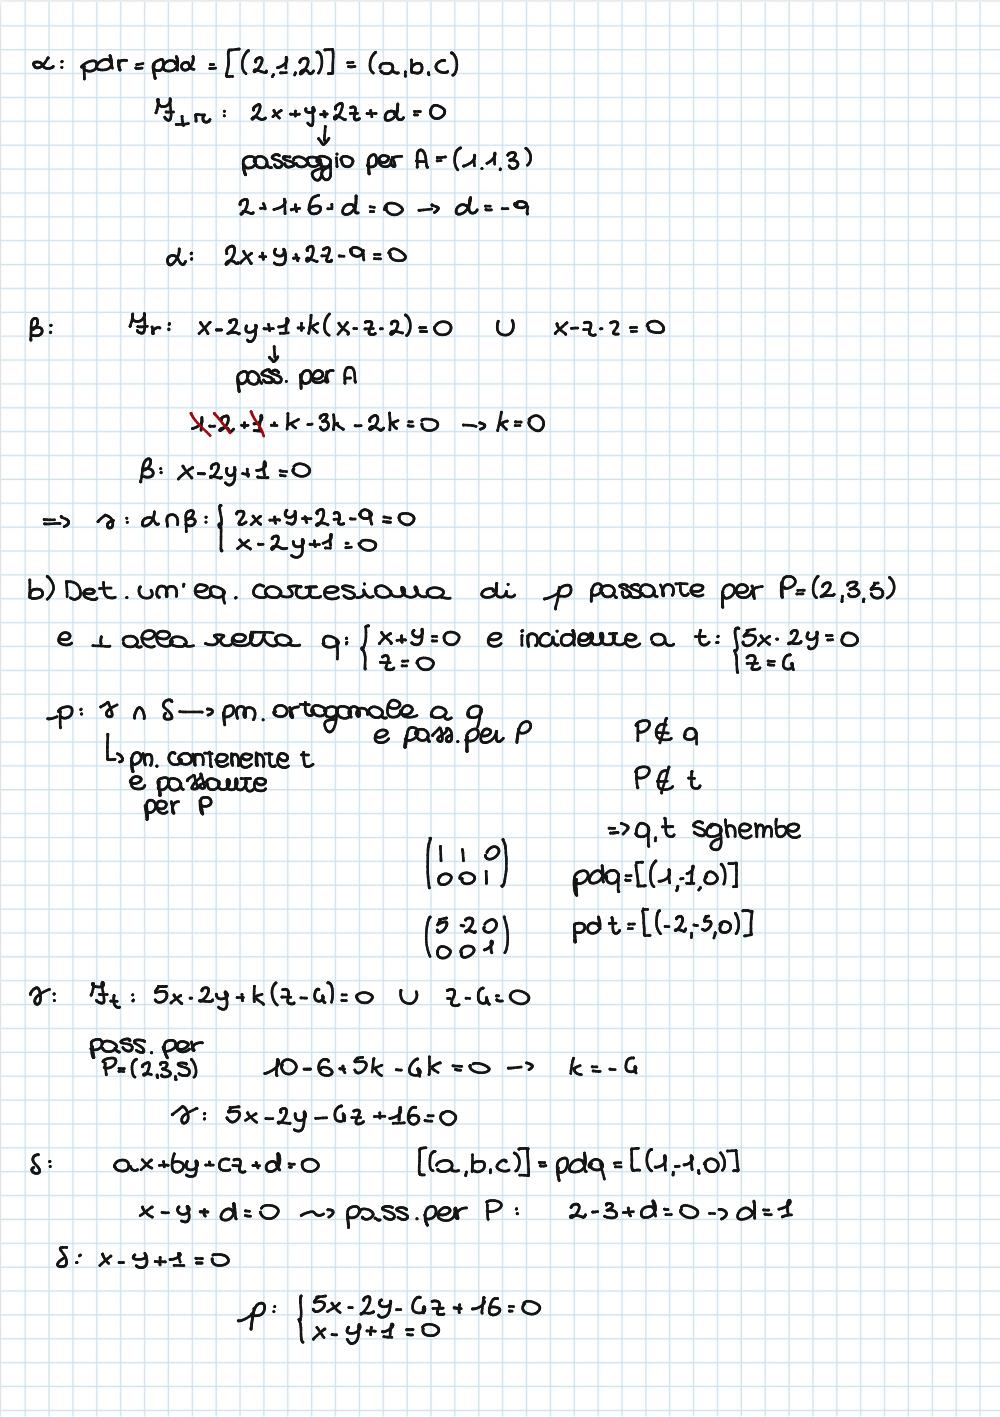 α: pdr = pdα = [(2,1,2)] = (a,b,c)
ℱ⊥r : 2x+y+2z+d=0
↓
passaggio per A=(1,1,3)
2+1+6+d=0 → d=-9
α: 2x+y+2z-9=0
β: ℱr: x-2y+1+k(x-z-2)=0 ∪ x-z-2=0
↓
pass. per A
1-2+1+k-3k-2k=0 → k=0
β: x-2y+1=0
=> s: α∩β: { 2x+y+2z-9=0
x-2y+1=0
b) Det. um'eq. cartesiana di p passante per P=(2,3,5)
e ⊥ alla retta q: { x+y=0 e incidente a t: { 5x-2y=0
z=0 z=4
p: γ ∩ δ → pm. ortogonale a q
e pass. per P P∉ q
↳ pn. contenente t
e passante P∉ t
per P
=> q,t sghembe
(1 1 0
0 0 1) pdq=[(1,-1,0)]
(5 -2 0
0 0 1) pdt=[(-2,-5,0)]
γ: ℱt : 5x-2y+k(z-4)=0 ∪ z-4=0
pass. per
P=(2,3,5) 10-6+5k-4k=0 → k=-4
γ: 5x-2y-4z+16=0
δ: ax+by+cz+d=0 [(a,b,c)]=pdq=[(1,-1,0)]
x-y+d=0 ⤳ pass. per P: 2-3+d=0 → d=1
δ: x-y+1=0
p: { 5x-2y-4z+16=0
x-y+1=0